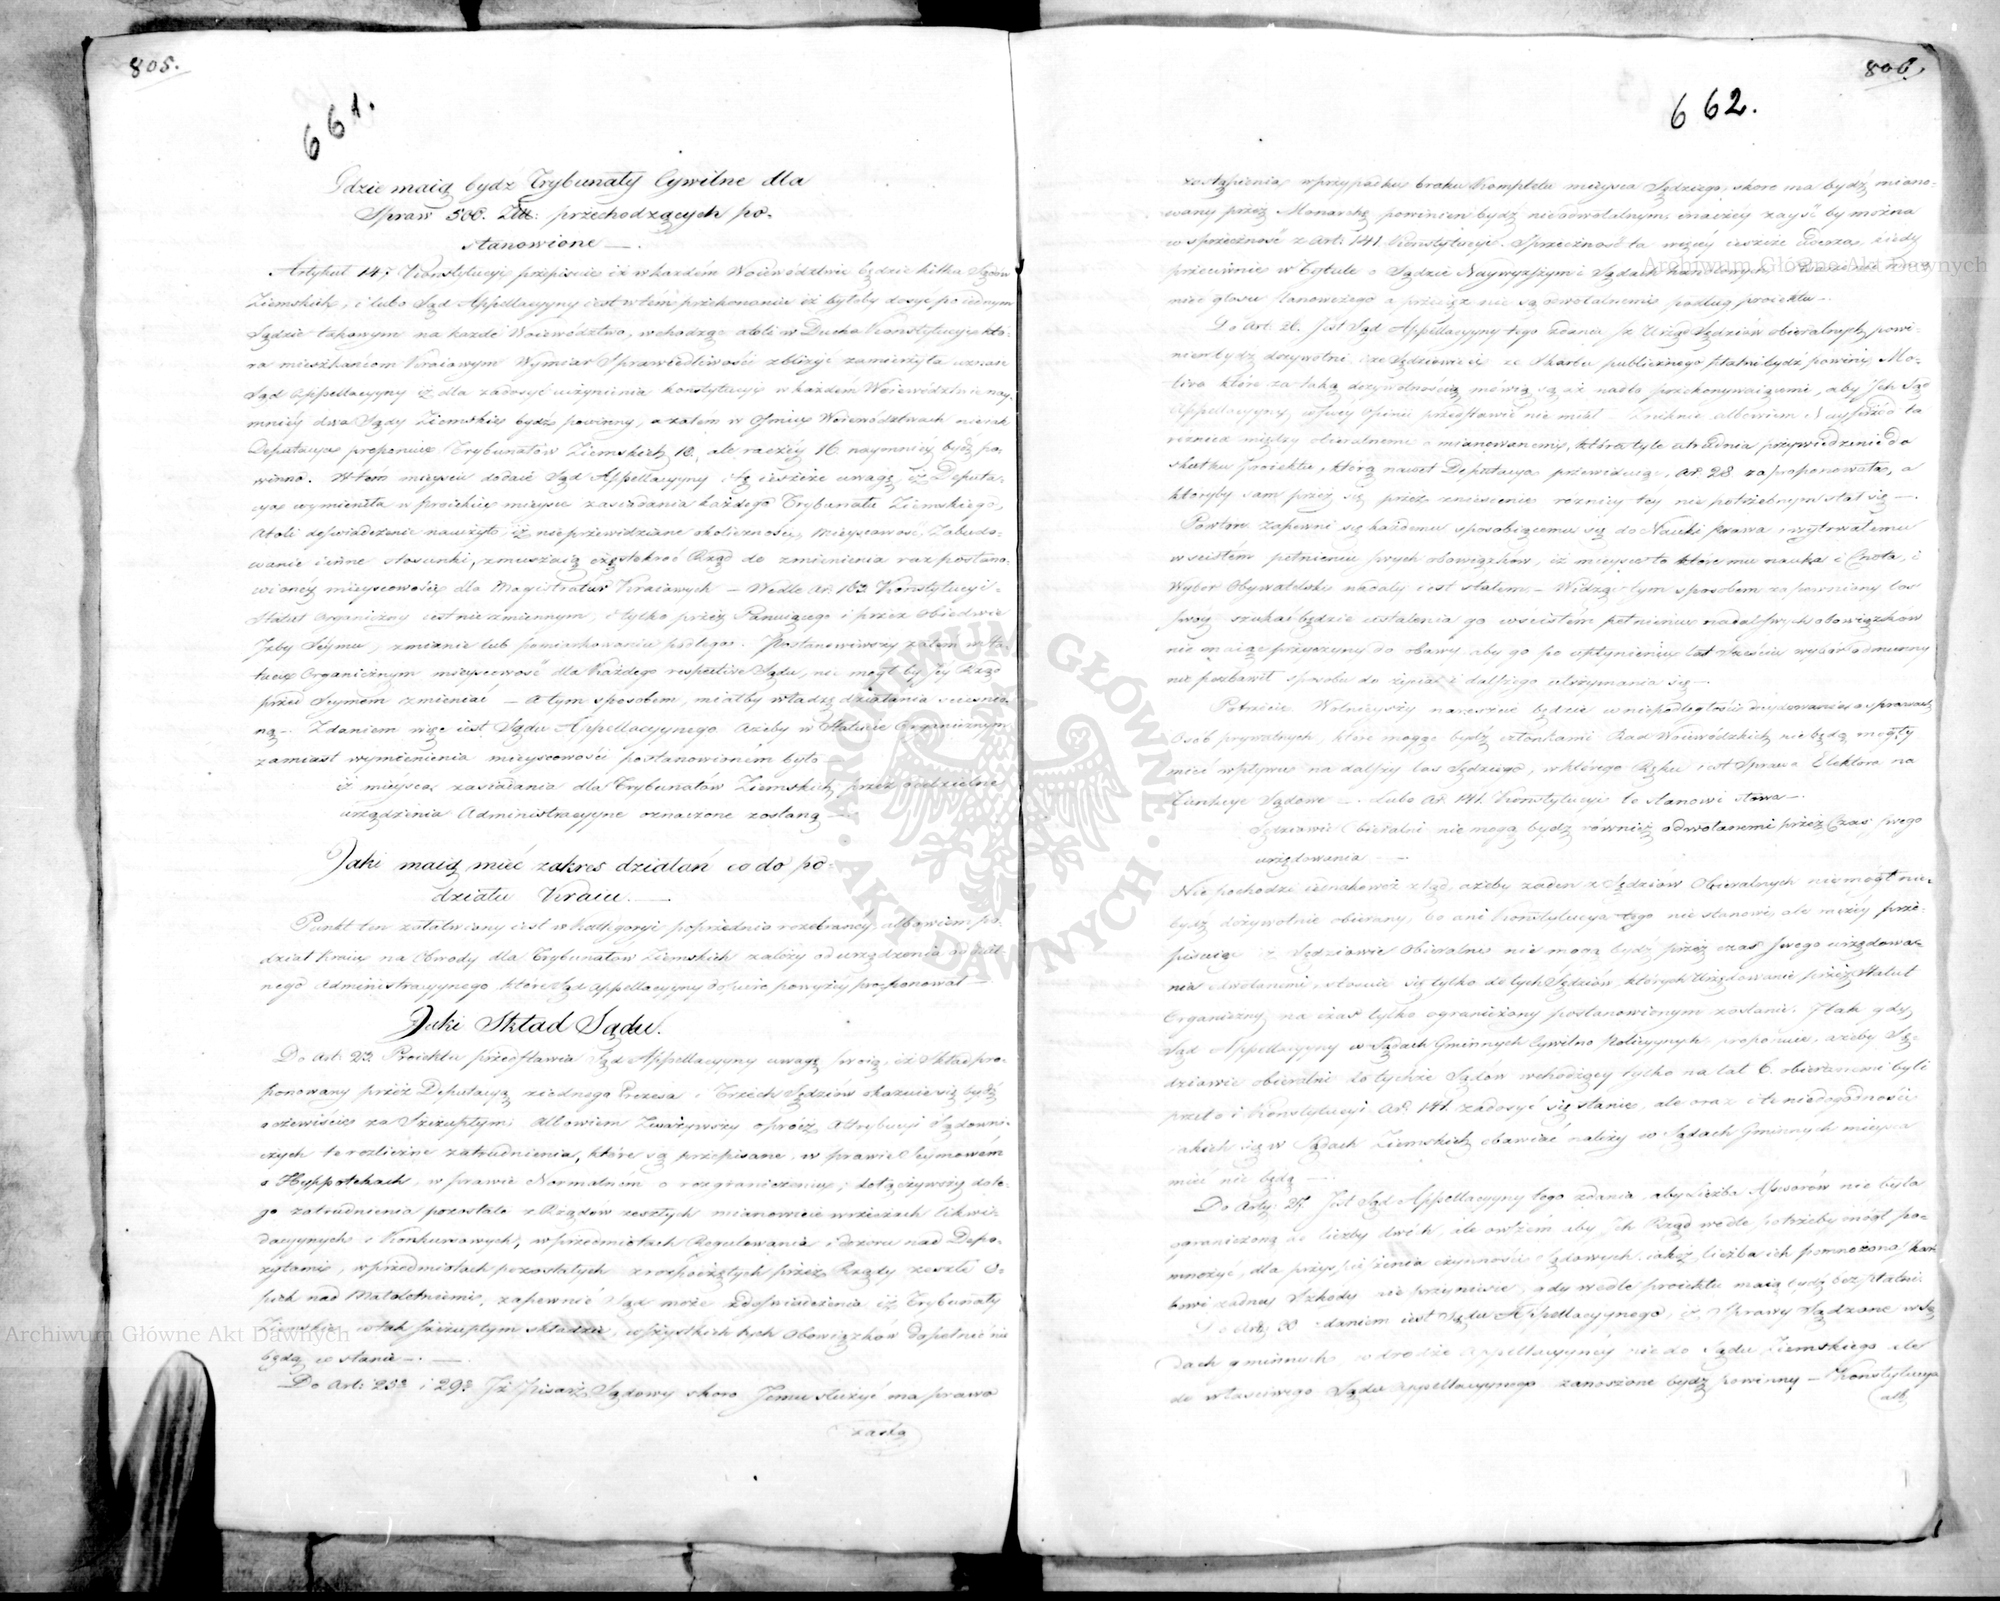 805.
661.
Gdzie maią bydź Trybunały Cywilne dla
Spraw 500. Złł: przechodzących po-
stanowione —.
Artykuł 147 Konstytucyi przepisuie iż w każdém Woiewództwie będzie kilka Sądów
Ziemskich, i lubo Sąd Appellacyyny iest w tém przekonaniu iż byłoby dosyć po iednym
Sądzie takowym na każde Woiewództwo, wchodząc atoli w Ducha Konstytucyi któ-
ra mieszkańcom Kraiowym Wymiar Sprawiedliwości zbliżyć zamierzyła uznaie
Sąd Appellacyyny iż dla zadosyć uczynienia konstytucyi w każdém Woiewództwie nay-
mniéy dwa Sądy Ziemskie bydź powinny, a zatém w Ośmiu Woiewództwach
Deputacya proponuie Trybunałów Ziemskich ale raczéy 16 naymniéy bydź po-
winno. W tém mieyscu dodaie Sąd Appellacyyny tę ieszcze uwagę, iż Deputa-
cya wymieniła w proiekcie mieysce zasiadania każdego Trybunału Ziemskiego,
Atoli doświadczenie nauczyło iż nieprzewidziane okoliczności, Mieyscowość, Zabudo-
wanie i inne stosunki, zmuszaią częstokroć Rząd do zmienienia raz postano-
wionéy mieyscowości dla Magistratur Kraiowych — Wedle Ar: 163 Konstytucyi
Statut Organiczny iest niezmiennym, i tylko przez Panuiącego i przez Obiedwie
Izby Seymu, zmianie lub pomiarkowaniu podlega. Postanowiwszy zatém w Sta-
tucie Organicznym mieyscowość dla Każdego respective Sądu, nie mógł by iéy Rząd
przed Seymem zmieniać — A tym sposobem, miałby władzę działania ścieśnio-
ną —. Zdaniem więc iest Sądu Appellacyynego ażeby w Statucie Organicznym
zamiast wymienienia mieyscowości postanowioném było
iż mieysca zasiadania dla Trybunałów Ziemskich przez oddzielne
urządzenia Administracyyne oznaczone zostaną —.
Jaki maią mieć zakres działań co do po-
działu Kraiu. —
Punkt ten załatwiony iest w Kathegoryi poprzednio rozebranéy, albowiem po-
dział Kraiu na Obwody dla Trybunałów Ziemskich zależy od urządzenia oddziel-
nego Administracyynego, które Sąd Appellacyyny dopiero powyżéy proponował —
Jaki Skład Sądu.
Do Art: 23 Proiektu przedstawia Sąd Appellacyyny uwagę swoią, iż Skład pro-
ponowany przez Deputacyą z iednego Prezesa i Trzech Sędziów okazuie się bydź
oczewiście za Szczupłym; Albowiem Zważywszy oprócz Attrybucyi Sądowni-
czych te rozliczne zatrudnienia, które są przepisane, w prawie Seymowém
o Hyppotekach, w prawie Normalném o rozgraniczeniu; dołączywszy dale-
ge zatrudnienia pozostałe z Rządów zeszłych mianowicie w rzeczach likwi-
dacyynych i Konkursowych, w przedmiotach Regulowania i dozoru nad Depo-
zytami, w przedmiotach pozostałych z rozpoczętych przez Rządy zeszłe O-
piek nad Małoletniemi, zapewnić Sąd może z doświadczenia iż Trybunały
Ziemskie w tak szczupłym składzie, wszystkich tych Obowiązków dopełnić nie
będą w stanie —.
Do Art: 23: i 29: Iż Pisarz Sądowy skoro Jemu służyć ma prawo
zastą
806.
662.
zastąpienia w przypadku braku Kompletu mieysca Sędziego, skoro ma bydź miano-
wany przez Monarchę powinien bydź nieodwołalnym, inaczéy zayść by można
w sprzeczność z Art: 141. Konstytucyi. Sprzeczność ta więcéy ieszcze uderza, kiedy
przeciwnie w Tytule o Sądzie Naywyższym i Sądach
mieć głosu stanowczego a przecież nie są odwołalnemi podług proiektu —.
Do Art: 26. Jest Sąd Appellacyyny tego zdania iż Urząd Sędziów obieralnych, powi-
nien bydź dożywotni, że Sędziowie ci ze Skarbu publicznego płatni bydź powinni, Mo-
tiva które za taką dożywotnością mówią są aż nadto przekonywaiącemi, aby Ich Sąd
Appellacyyny w swéy Opinii przedstawić nie miał — Zniknie albowiem Nayprzód ta
różnica między obieralnemi a mianowanemi, która tyle utrudnia przywiedzenie do
skutku Proiektu, którą nawet Deputacya przewiduiąc, Ar: 28 zaproponowała, a
któryby sam przez się przez zniesienie różnicy téy niepotrzebnym stał się —.
Powtóre Zapewni się każdemu sposobiącemu się do Nauki Prawa i wytrwałemu
w ścisłém pełnieniu swych obowiązków, iż mieysce to które mu nauka i Cnota, i
Wybór Obywatelski nadały iest stałem — Widząc tym sposobem zapewniony los
swóy szukać będzie ustalenia go w ścisłém pełnieniu nadal swych obowiązków
nie maiąc przyczyny do obawy, aby go po upłynieniu lat Sześciu wybór odmienny
nie pozbawił sposobu do życia i dalszego utrzymania się —.
Potrzecie Wolnieyszy nareszcie będzie w niepodległości decydowania o sprawach
Osób prywatnych, które mogąc bydź członkami Rad Woiewódzkich nie będą mogły
mieć wpływu na dalszy los Sędziego, w którego Ręku iest Sprawa Elektora na
Funkcye Sądowe —. Lubo Ar: 141. Konstytucyi te stanowi słowa —.
Sędziowie Obieralni nie mogą bydź również odwołanemi przez Czas swego
urzędowania —.
Nie pochodzi iednakowoż z tąd, ażeby żaden z Sędziów Obieralnych nie mógł nie-
bydź dożywotnie obierany, bo ani Konstytucya tego nie stanowi, ale raczéy prze-
pisuiąc iż Sędziowie Obieralni nie mogą bydź przez czas swego urzędowa-
nia odwołanemi, stosuie się tylko do tych Sędziów, których Urzędowanie przez Statut
Organiczny na czas tylko ograniczony postanowionym zostanie. I tak gdy
Sąd Appellacyyny w Sądach Gminnych Cywilno Policyynych, proponuie, ażeby Sę-
dziowie obieralni do tychże Sądów wchodzący tylko na lat 6. obieranemi byli
przeto i Konstytucyi Ar: 141. zadosyć się stanie, ale oraz i te niedogodności
iakich się w Sądach Ziemskich obawiać należy w Sądach Gminnych mieysca
mieć nie będą —.
Do Arty: 27. Jest Sąd Appellacyyny tego zdania, aby Liczba Assesorów nie była
ograniczoną do liczby dwóch, ale owszem aby Ich Rząd wedle potrzeby mógł po-
mnożyć, dla przyspieszenia czynności Sądowych, iakoż liczba ich pomnożona Skar-
bowi żadnéy Szkody nie przyniesie, gdy wedle proiektu maią bydź bezpłatni.
Do Art: 30 zdaniem iest Sądu Appellacyynego, iż Sprawy Sądzone w Są-
dach gminnych, w drodze Appellacyynéy nie do Sądu Ziemskiego ale
do właściwego Sądu Appellacyynego zanoszone bydź powinny — Konstytucya
alb
Archiwum Główne Akt Dawnych
Archiwum Główne Akt Dawnych
ARCHIWUM GŁÓWNE AKT DAWNYCH